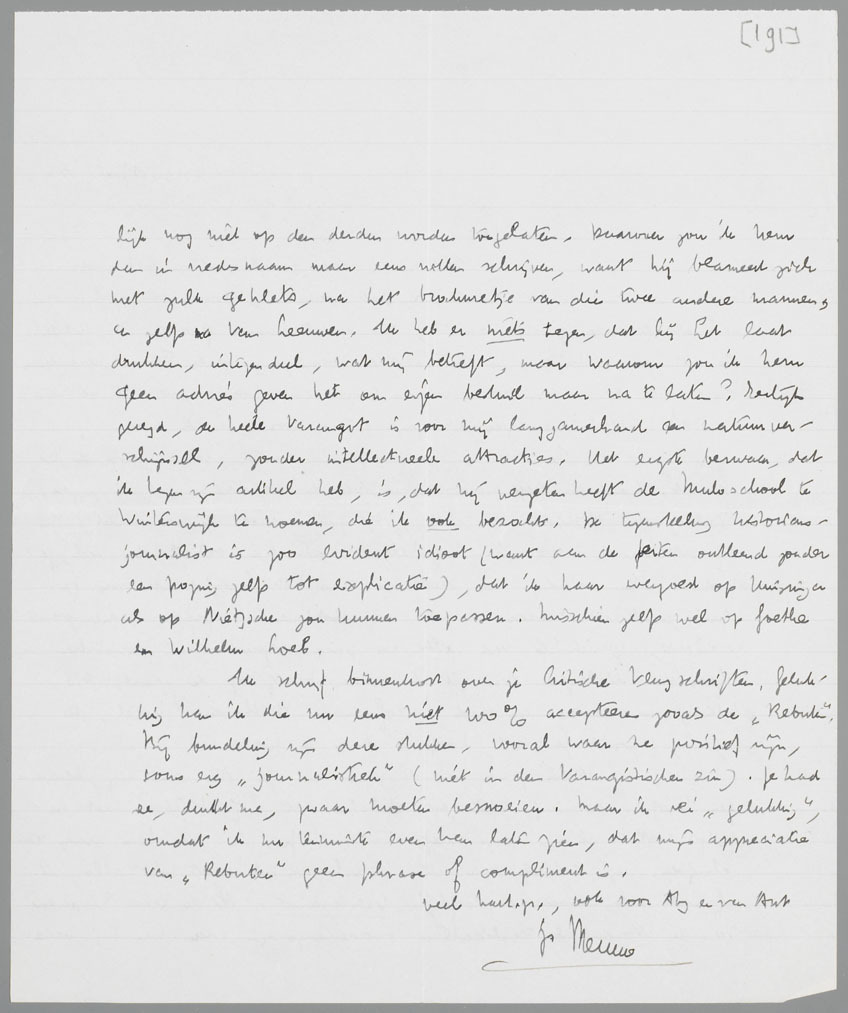 [191]
lijk nog niet op den derden worden toegelaten. Daarvoor zou ik hem
dan in vredesnaam maar eens willen schrijven, want hij blameert zich
met zulk geklets, na het brochuretje van die twee andere mannen,
en zelfs na Van Leeuwen. Ik heb er niets tegen, dat hij het laat
drukken, integendeel, wat mij betreft, maar waarom zou ik hem
geen advies geven het om eigen bestwil maar na te laten? Eerlijk
gezegd, de heele Varangot is voor mij langzamerhand een natuurver-
schijnsel, zonder intellectueele attracties. Het eenige bezwaar, dat
ik tegen zijn artikel heb, is, dat hij vergeten heeft de Muloschool te
Winterswijk te noemen, die ik ook bezocht. De tegenstelling historicus-
journalist is zoo evident idioot (want aan de feiten ontleend zonder
een poging zelfs tot explicatie), dat ik haar evengoed op Huizinga
als op Nietzsche zou kunnen toepassen. Misschien zelfs wel op Goethe
en Wilhelm Loeb.
Ik schrijf binnenkort over je Critische Vlugschriften. Geluk-
kig kan ik die nu eens niet 100% accepteeren zooals de „Rebuten".
Bij bundeling zijn deze stukken, vooral waar ze positief zijn,
soms erg „journalistiek" (niet in den Varangistischen zin). Je had
ze, dunkt me, zwaar moeten besnoeien. Maar ik zei „gelukkig",
omdat ik nu tenminste even kan laten zien, dat mijn appreciatie
van „Rebuten" geen phrase of compliment is.
veel hart. gr., ook voor Atg en van Ant
je Menno